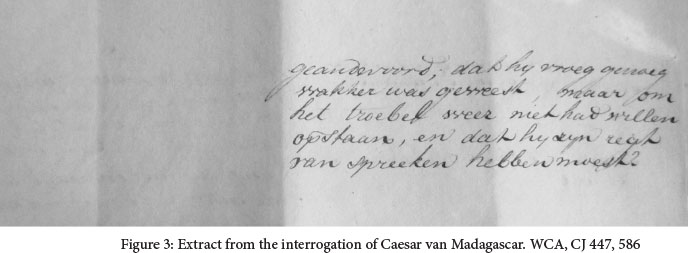 geandwoord, dat hy vroeg genoeg
wakker was geweest, maar om
het troebel weer niet had willen
opstaan, en dat hy zyn regt
van spreeken hebben moest?
Figure 3: Extract from the interrogation of Caesar van Madagascar. WCA, CJ 447, 586